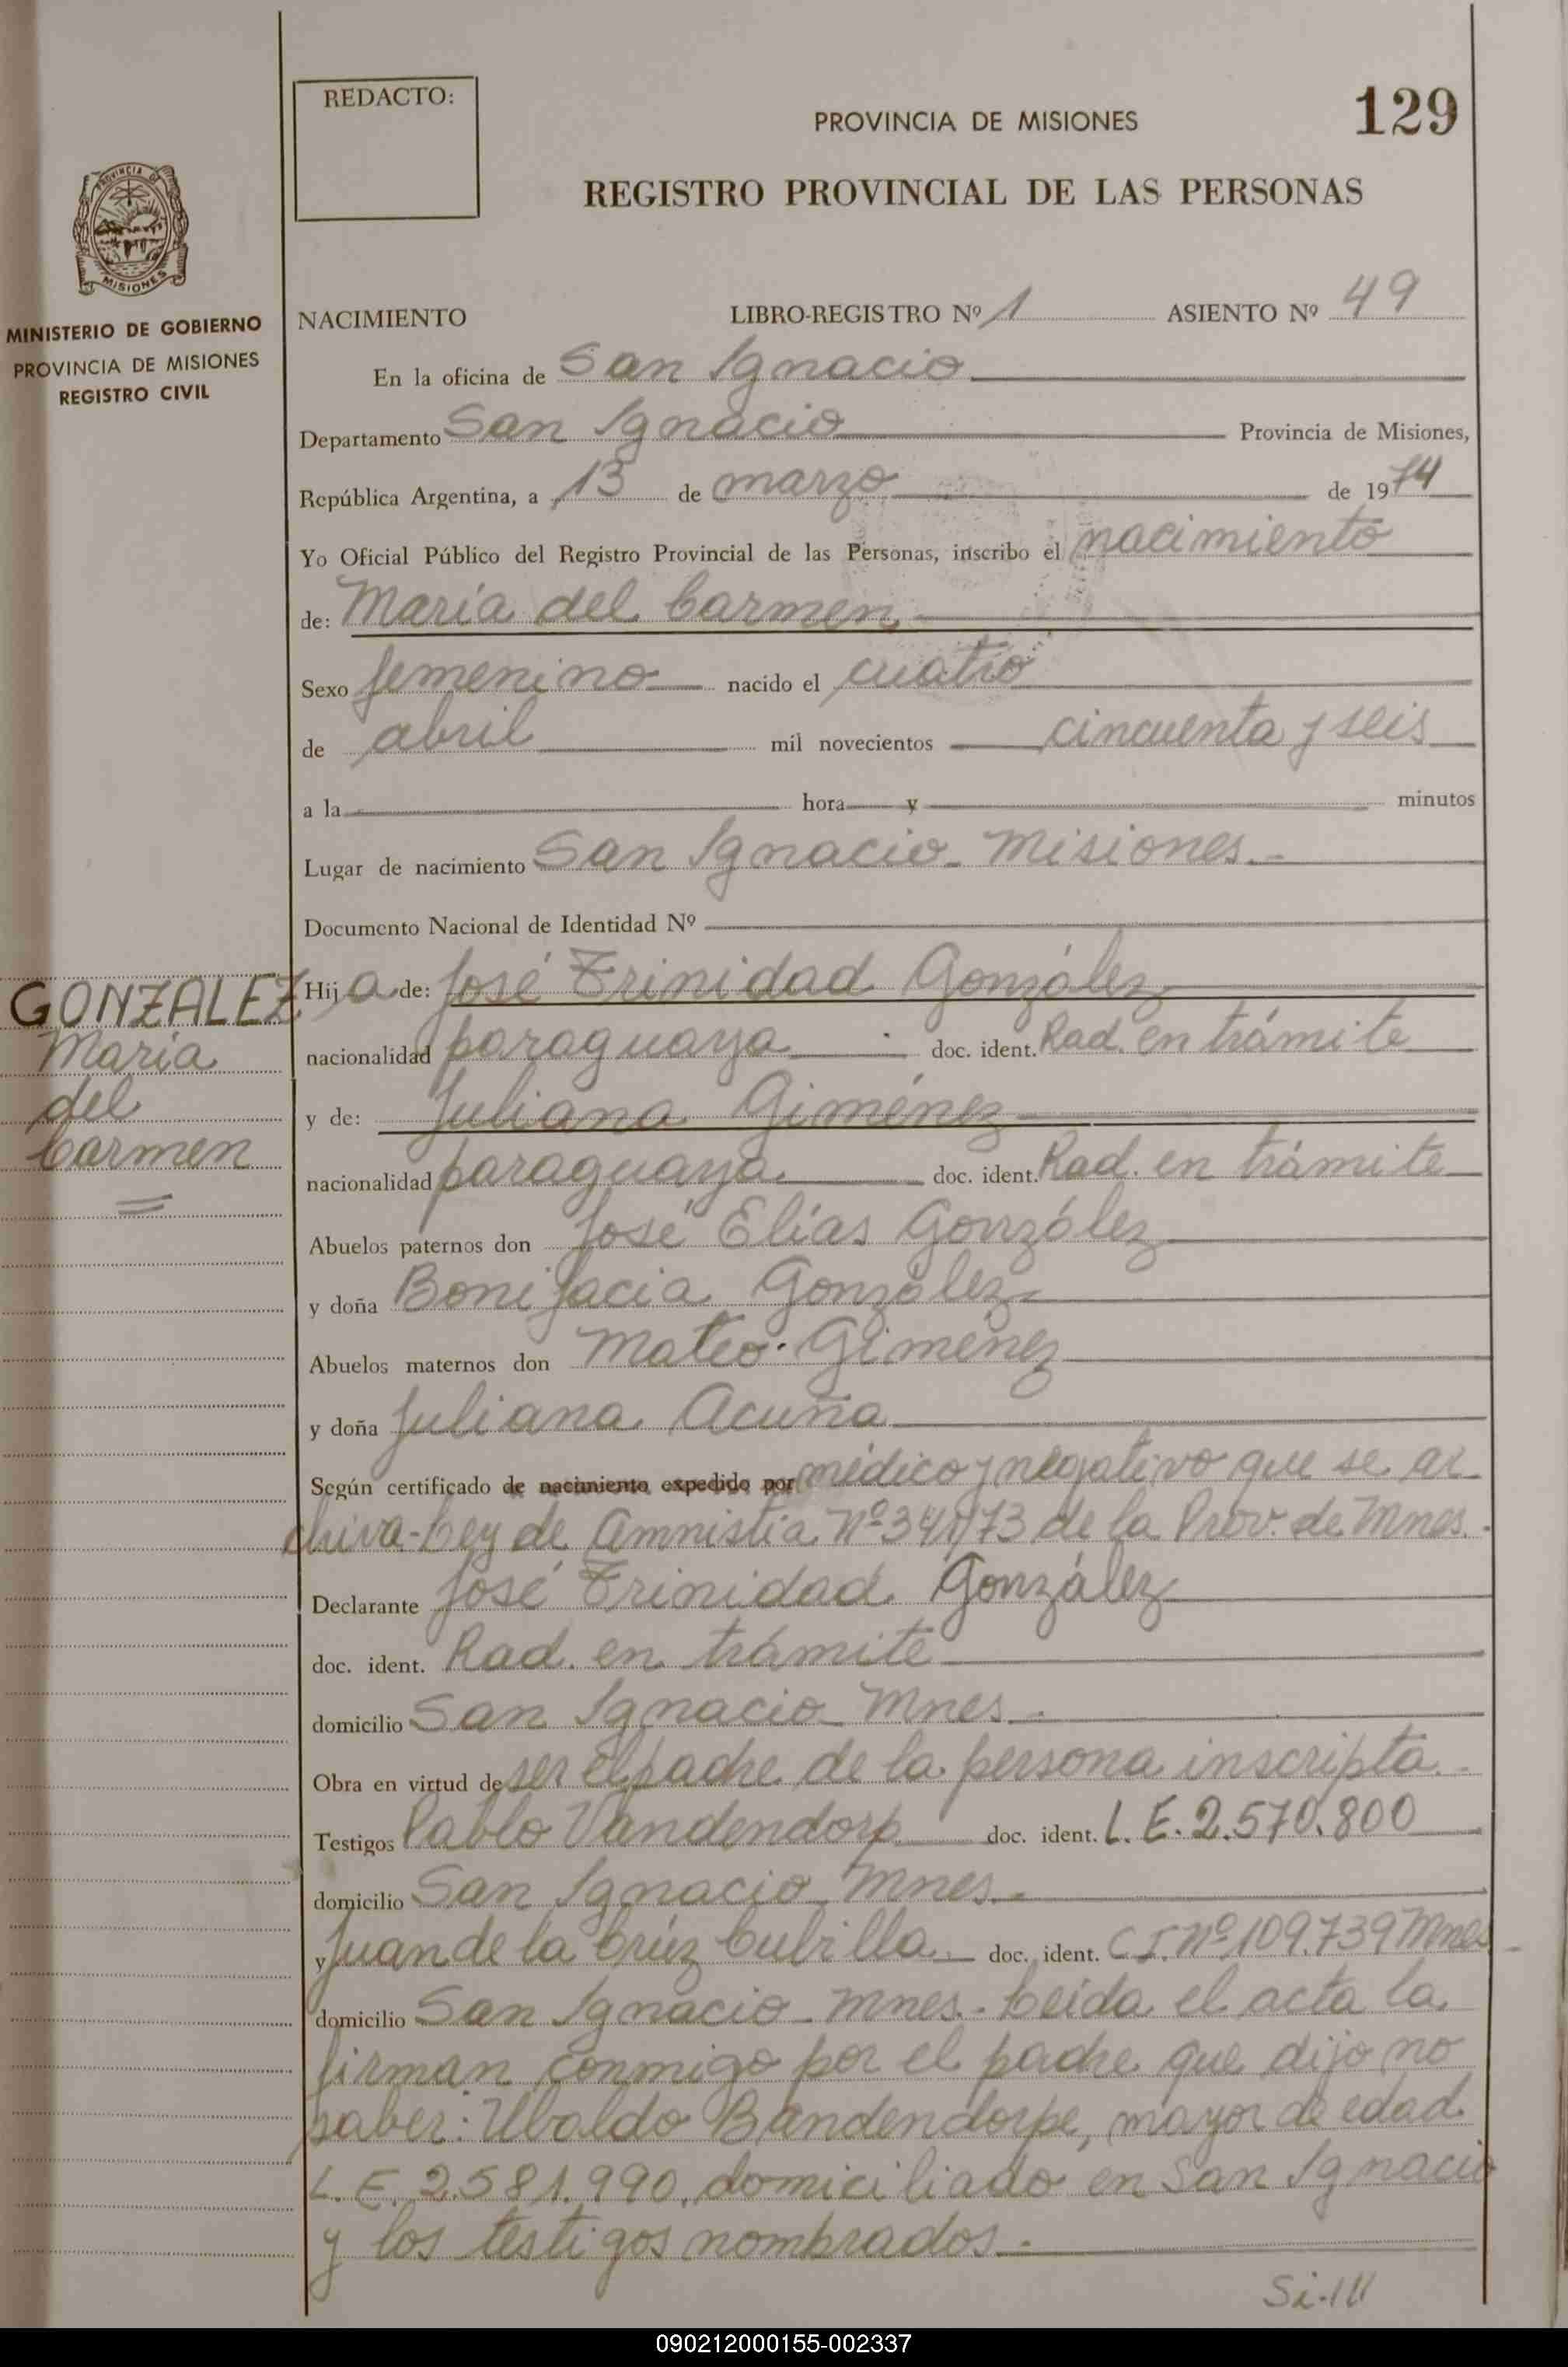 REDACTO:
PROVINCIA DE MISIONES
129
REGISTRO PROVINCIAL DE LAS PERSONAS
PROVINCIA DE
MISIONES
MINISTERIO DE GOBIERNO
PROVINCIA DE MISIONES
REGISTRO CIVIL
NACIMIENTO LIBRO-REGISTRO Nº 1 ASIENTO Nº 49
En la oficina de San Ignacio
Departamento San Ignacio Provincia de Misiones,
República Argentina, a 13 de marzo de 1974
Yo Oficial Público del Registro Provincial de las Personas, inscribo el nacimiento
de: María del Carmen
Sexo femenino nacido el cuatro
de abril mil novecientos cincuenta y seis
a la hora y minutos
Lugar de nacimiento San Ignacio - Misiones.-
Documento Nacional de Identidad Nº
GONZALEZ
María
del
Carmen
Hija de: José Trinidad González
nacionalidad paraguaya doc. ident. Rad. en trámite
y de: Juliana Giménez
nacionalidad paraguaya doc. ident. Rad. en trámite
Abuelos paternos don José Elías González
y doña Bonifacia González
Abuelos maternos don Mateo Giménez
y doña Juliana Acuña
Según certificado de nacimiento expedido por médico y negativo que se ar-
chiva-Ley de Amnistía Nº 341/73 de la Prov. de Mnes.
Declarante José Trinidad González
doc. ident. Rad. en trámite
domicilio San Ignacio Mnes.
Obra en virtud de ser el padre de la persona inscripta.
Testigos Pablo Vandendorp doc. ident. L. E. 2.570.800
domicilio San Ignacio Mnes.
y Juan de la Crúz Cubilla doc. ident. C.I. Nº 109.739 Mnes
domicilio San Ignacio - Mnes.- Leída el acta la
firman conmigo por el padre que dijo no
saber: Ubaldo Bandendorpe, mayor de edad
L. E. 2.581.990, domiciliado en San Ignacio
y los testigos nombrados.-
090212000155-002337